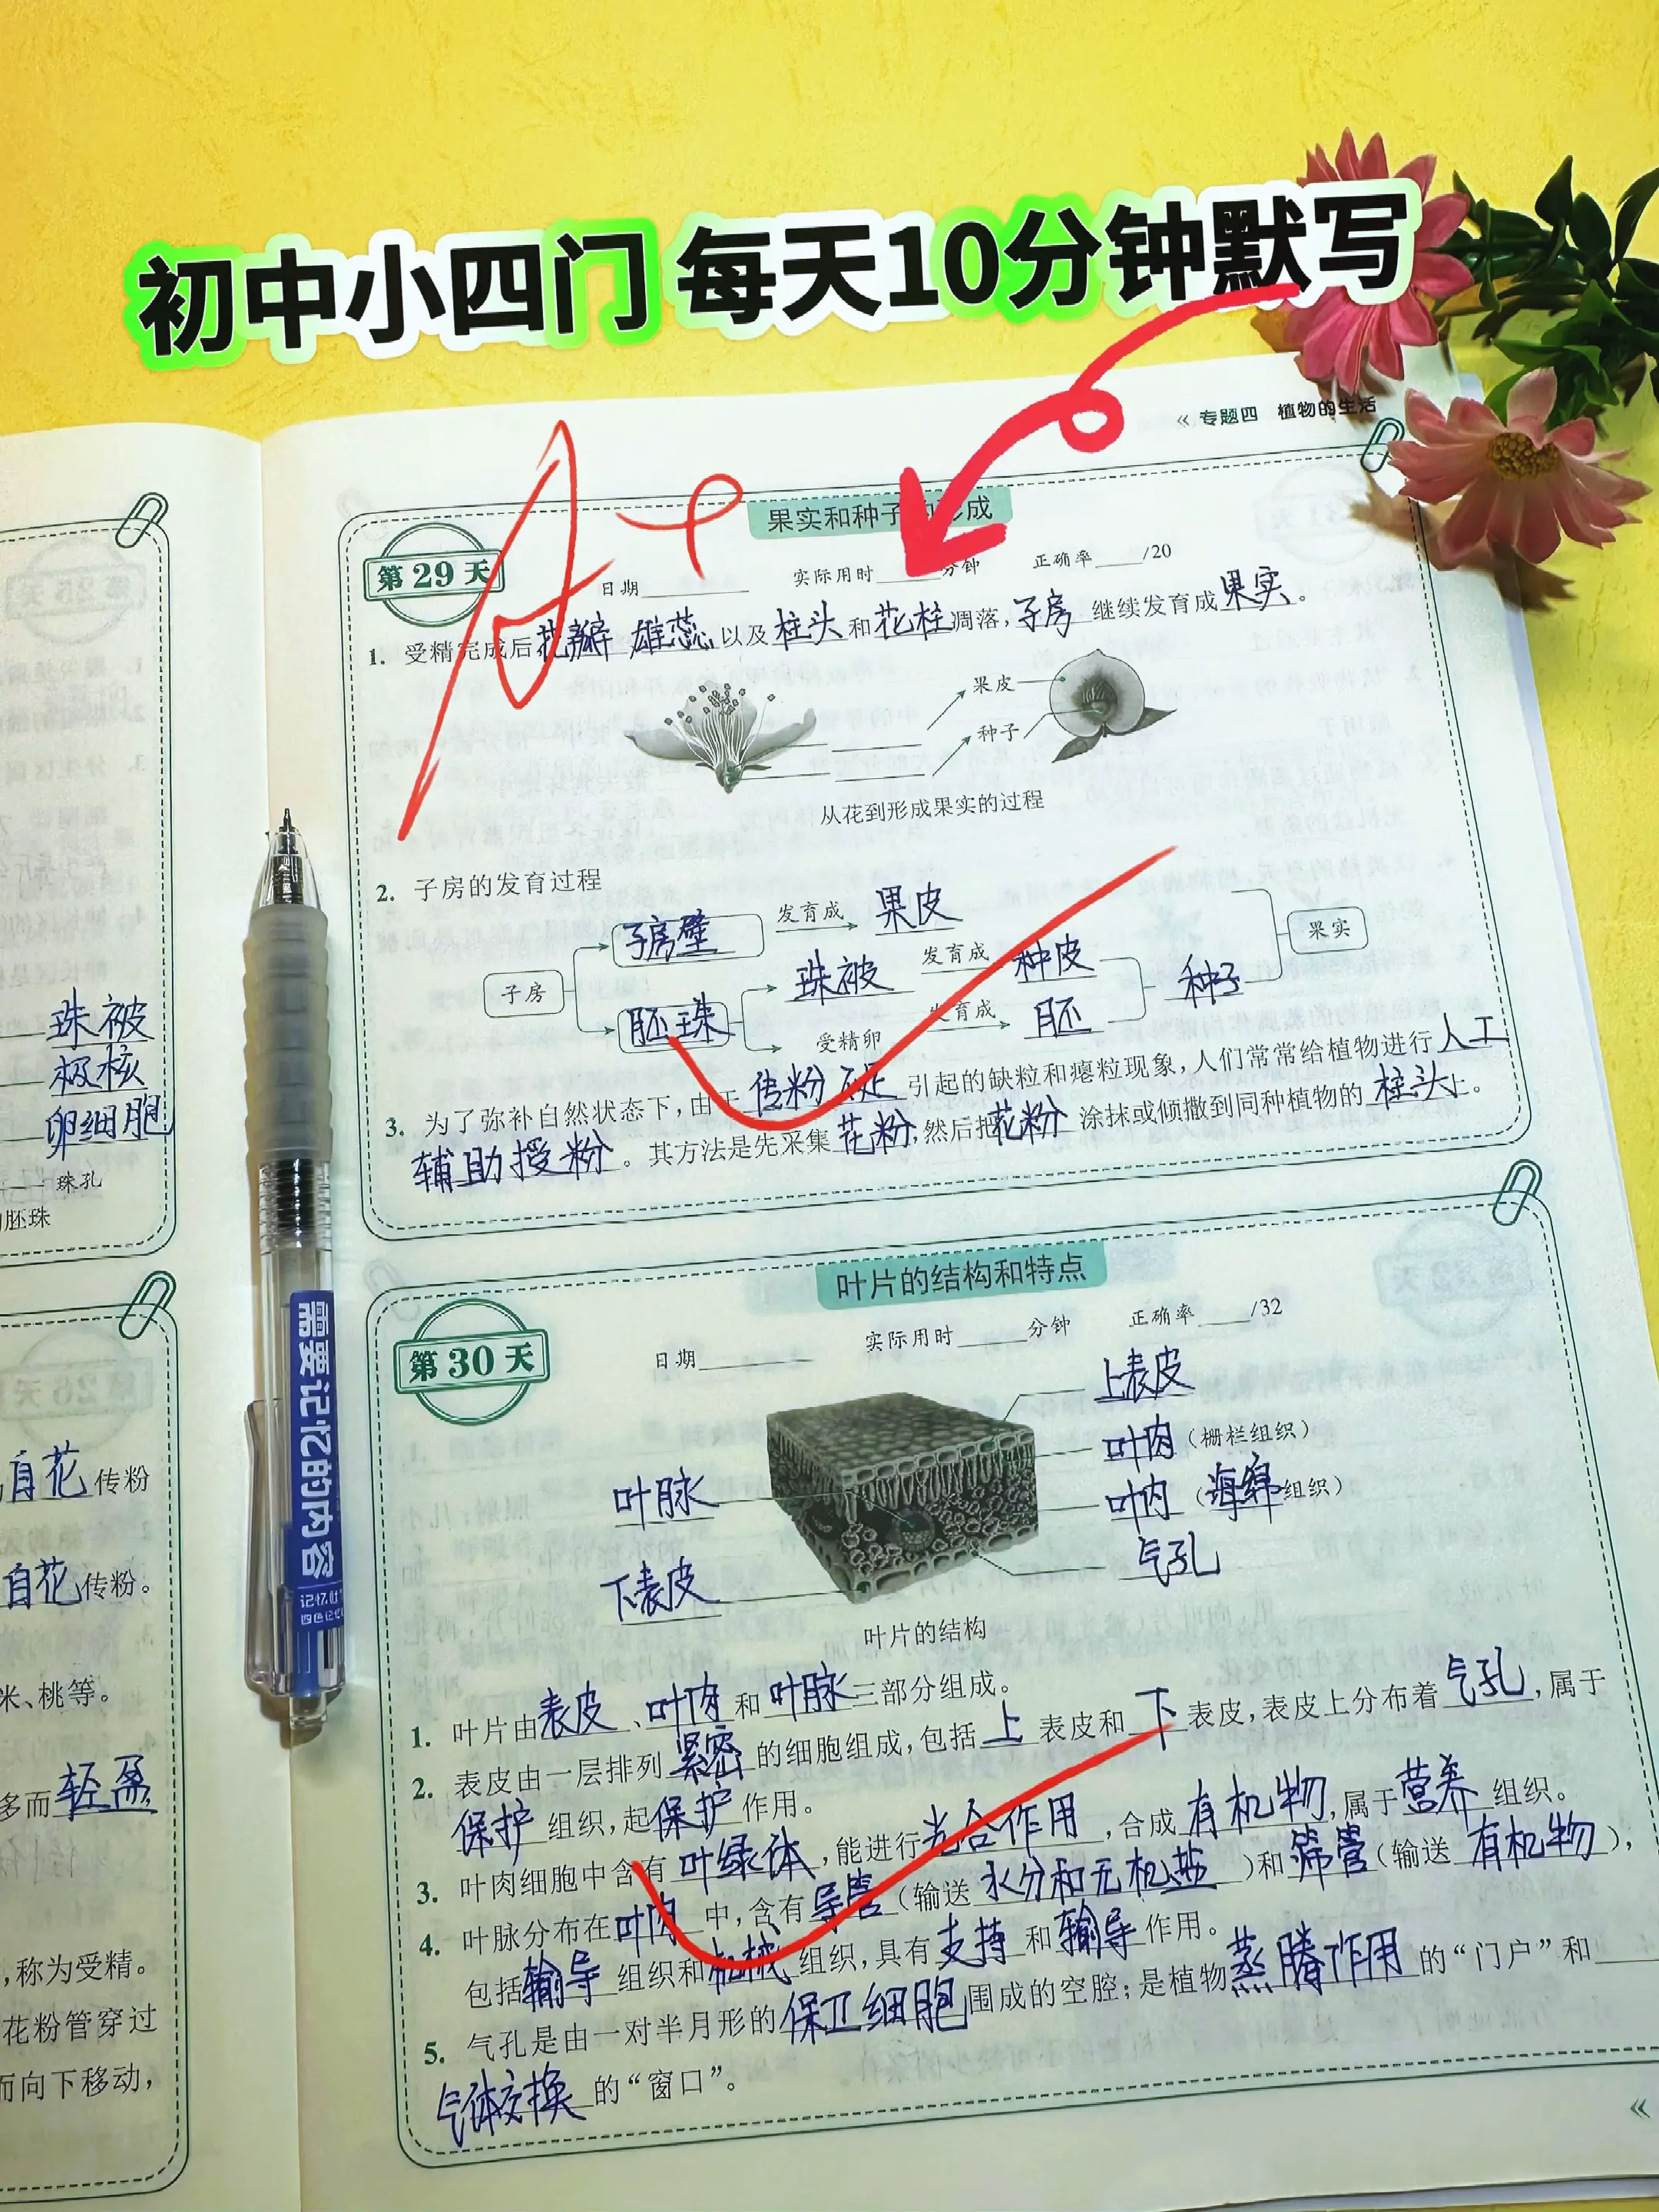 初中小四门 每天10分钟默写
« 专题四 植物的生活
珠被
极核
卵细胞
珠孔
胚珠
自花传粉
自花传粉。
米、桃等。
多而轻盈
,称为受精。
花粉管穿过
而向下移动,
需要记忆的内容
第29天
果实和种子 形成
日期 实际用时 分钟 正确率 /20
1. 受精完成后花瓣 雄蕊以及柱头和花柱凋落,子房 继续发育成果实。
果皮
种子
从花到形成果实的过程
2. 子房的发育过程
子房壁 发育成 果皮
子房 珠被 发育成 种皮 种子 果实
胚珠 受精卵 发育成 胚
3. 为了弥补自然状态下,由于传粉不足引起的缺粒和瘪粒现象,人们常常给植物进行人工
辅助授粉。其方法是先采集花粉,然后把花粉涂抹或倾撒到同种植物的柱头上。
第30天
叶片的结构和特点
日期 实际用时 分钟 正确率 /32
上表皮
叶肉(栅栏组织)
叶脉 叶肉(海绵组织)
下表皮 气孔
叶片的结构
1. 叶片由表皮、叶肉和叶脉三部分组成。
2. 表皮由一层排列紧密的细胞组成,包括上表皮和下表皮,表皮上分布着气孔,属于
保护组织,起保护作用。
3. 叶肉细胞中含有叶绿体,能进行光合作用,合成有机物,属于营养组织。
4. 叶脉分布在叶肉中,含有导管(输送水分和无机盐)和筛管(输送有机物),
包括输导组织和机械组织,具有支持和输导作用。
5. 气孔是由一对半月形的保卫细胞围成的空腔;是植物蒸腾作用的“门户”和
气体交换的“窗口”。
«